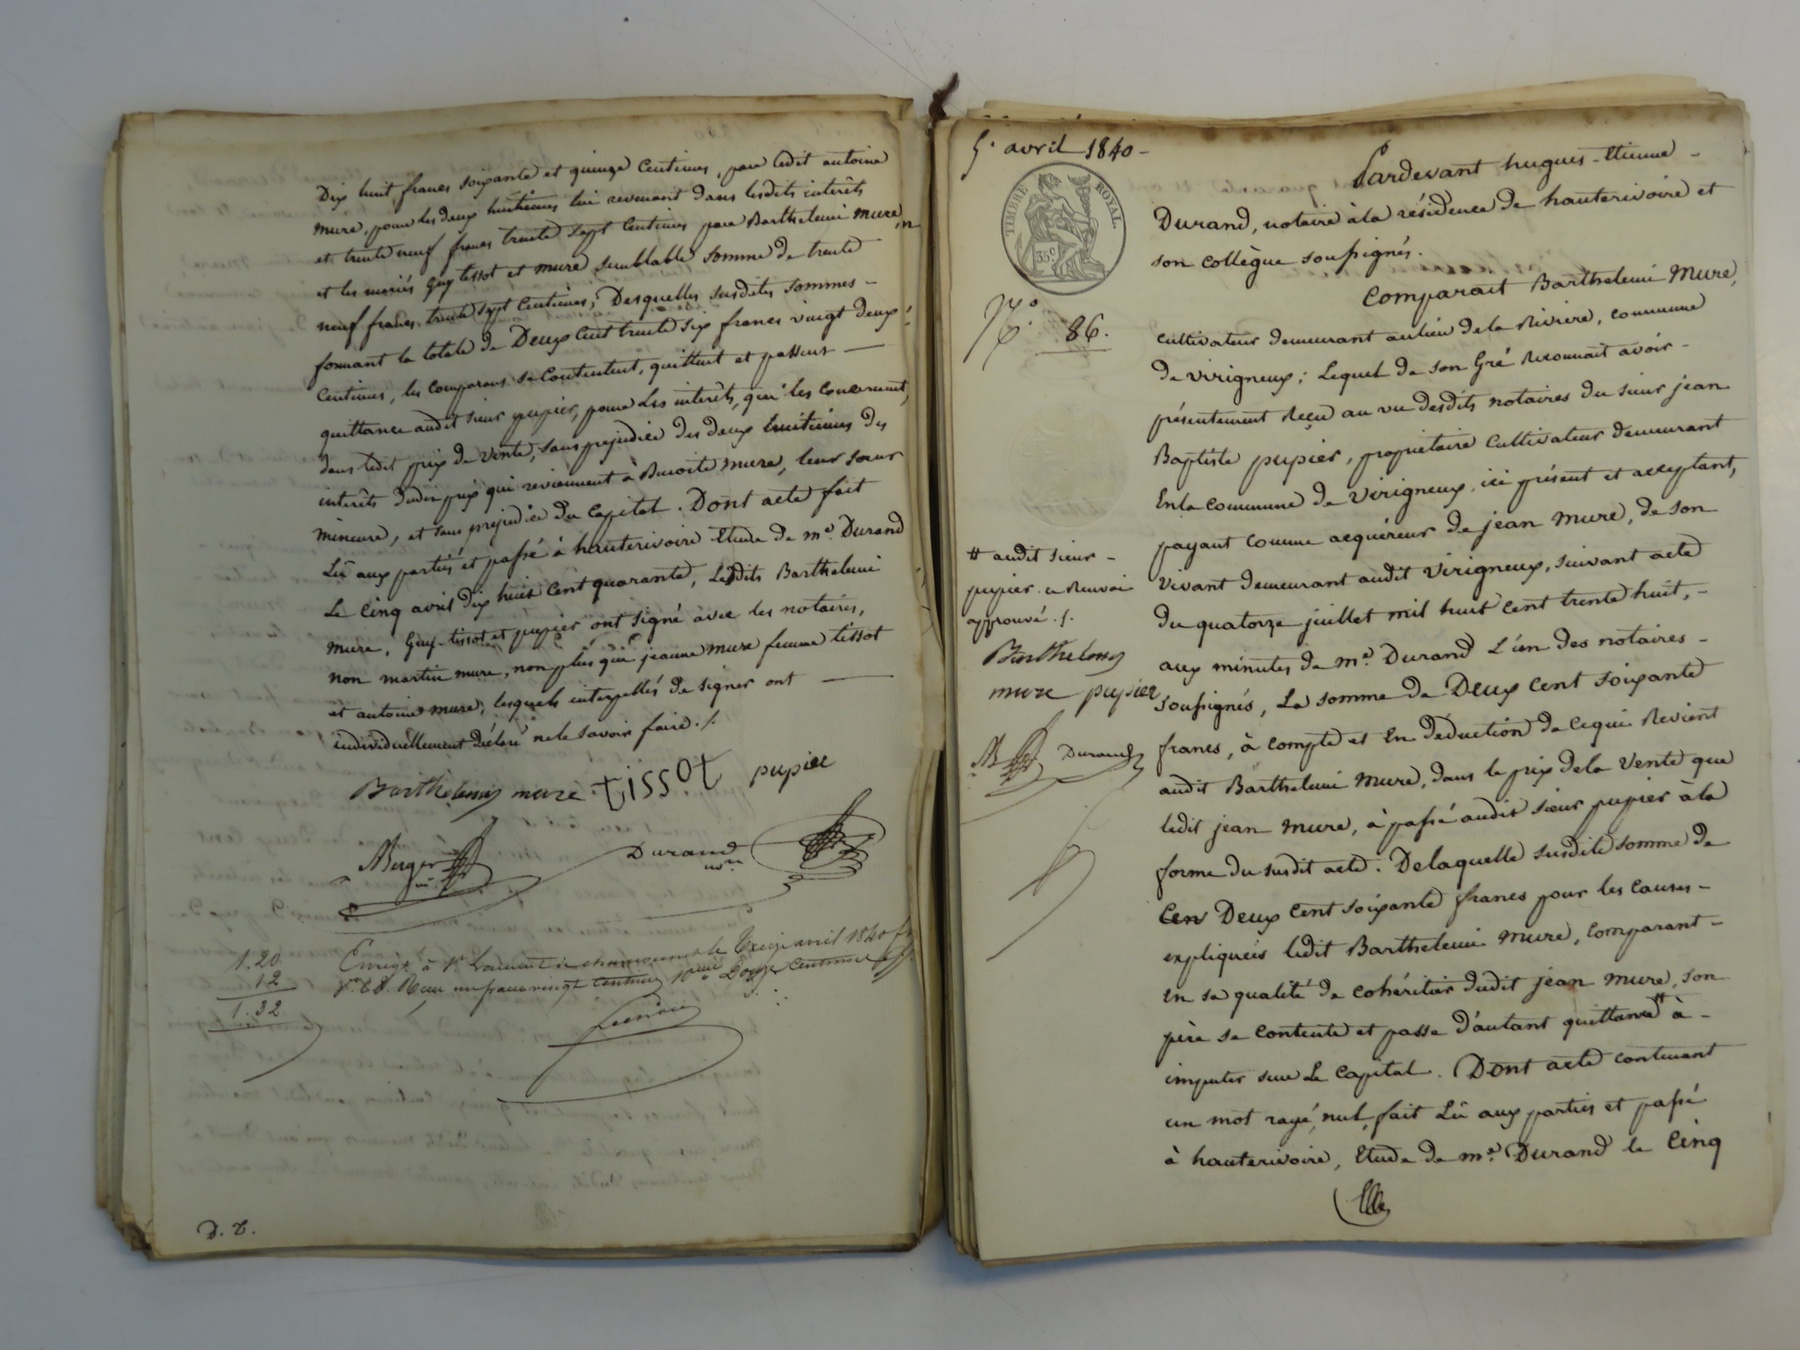 Dix huit francs soixante et quinze Centimes, pour ledit antoine
mure, pour les deux huitièmes lui revenant dans lesdits intérêts
et trente neuf francs trente sept Centimes pour Barthelemi mure,
et les mariés Guy tissot et mure semblable somme de trente
neuf francs trente sept Centimes; Desquelles susdites sommes -
formant la totale de Deux Cent trente six francs vingt deux
Centimes, les comparans se Contentent, quittent et passent —
quittance audit sieur pupier, pour les intérêts, qui les concernent,
dans ledit prix de vente, sans prejudice des deux huitièmes des
intérêts dudit prix qui reviennent à Benoite mure, leur sœur
mineure, et sans prejudice du Capital. Dont acte fait
Lû aux parties et passé à hauterivoire Etude de me. Durand
Le Cinq avril dix huit Cent quarante, Lesdits Barthelemi
mure, Guy-tissot et pupier ont signé avec les notaires,
non martin mure, non plus que jeanne mure femme tissot
et antoine mure, lesquels interpellés de signer ont —
individuellement déclaré ne le savoir faire ./.
Barthelemy mure tissot pupier
Berger Durand
nre. nre.
1.20
12
1.32
Enregé à St Laurent de chamousset le Treize avril 1840 fo
Reçu un franc vingt centimes, 10eme Douze Centimes
D. D.
5. avril 1840 -
TIMBRE ROYAL
35c
No. 86.
Pardevant hugues-Etienne -
Durand, notaire à la résidence de hauterivoire et
son collègue soussignés.
Comparait Barthelemi mure,
cultivateur demeurant au lieu de la Rivière, commune
de virigneux; Lequel de son Gré Reconnait avoir -
présentement Reçu au vu desdits notaires du sieur jean
Baptiste pupier, propriétaire Cultivateur demeurant
En la commune de Virigneux, ici présent et acceptant,
payant comme acquéreur de jean mure, de son
vivant demeurant audit Virigneux, suivant acte
du quatorze juillet mil huit cent trente huit, -
aux minutes de me. Durand L'un des notaires -
soussignés, La somme de Deux Cent soixante
francs, à compte et En Deduction de ce qui Revient
audit Barthelemi mure, dans le prix de la vente que
ledit jean mure, à passé audit sieur pupier à la
forme du susdit acte. De laquelle susdite somme de
Deux Cent soixante francs pour les causes -
expliquées ledit Barthelemi mure, comparant -
En sa qualité de cohéritier dudit jean mure, son
père se contente et passe d'autant quittance # à -
imputer sur Le Capital. Dont acte contenant
un mot rayé nul, fait Lû aux parties et passé
à hauterivoire, Etude de me. Durand le Cinq
# audit sieur -
pupier. ce Renvoi
approuvé ./.
Barthelemy
mure pupier
B Durand